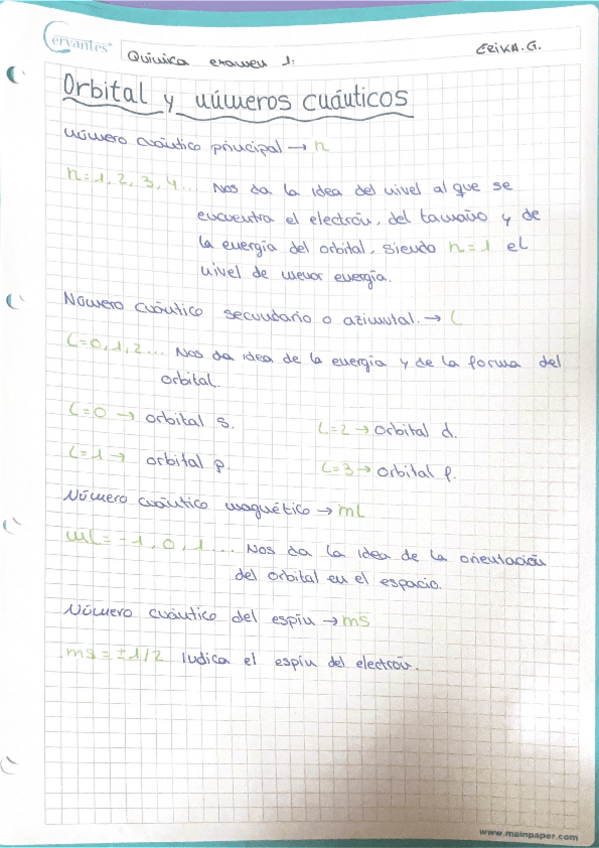 Cervantes
Química examen 1:
ERIKA.G.
Orbital y números cuánticos
Número cuántico principal → n
n=1, 2, 3, 4... Nos da la idea del nivel al que se
encuentra el electrón, del tamaño y de
la energía del orbital, siendo n=1 el
nivel de menor energía.
Número cuántico secundario o azimutal. → l
l=0, 1, 2... Nos da idea de la energía y de la forma del
orbital.
l=0 → orbital s.
l=2 → orbital d.
l=1 → orbital p.
l=3 → orbital f.
Número cuántico magnético → ml
ml= -1, 0, 1.... Nos da la idea de la orientación
del orbital en el espacio.
Número cuántico del espín → ms
ms = ±1/2 Indica el espín del electrón.
www.mainpaper.com